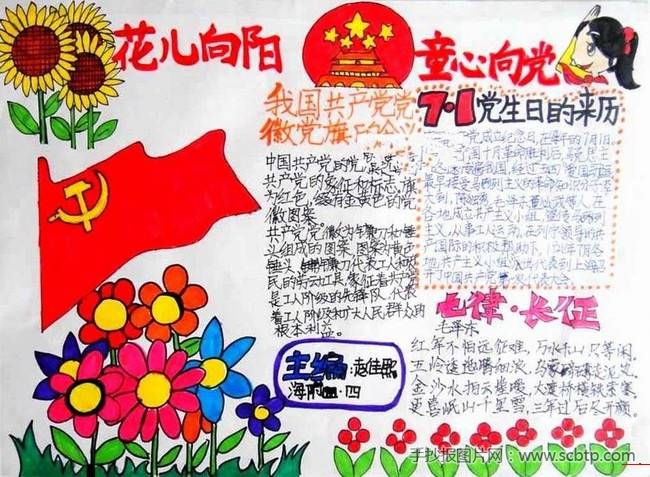 花儿向阳
童心向党
我国共产党党
徽党旗
7·1党生日的来历
中国共产党的党
共产党的象征和标志,旗
为红色,缀有金黄色的党
徽图案
共产党党徽为镰刀和锤
头组成的图案
锤头 镰刀代表工人和农
民的劳动工具,象征着共产党
是工人阶级的先锋队,代表
着工人阶级和广大人民群众的
根本利益。
党成立纪念日,在每年的7月1日。
国十月革命胜利后,马克思主
经过五四
最早接受马列主义的革命知识分子
到 陈独秀、毛泽东 等人在
各地成立共产主义小组,宣传马列
主义,从事工人运动,在列宁领导的共
产国际的积极帮助下,
共产主义小组 代表到上海召
开了中国共产党 代表大会
七律·长征
毛泽东
红军不怕远征难,万水千山只等闲。
五岭逶迤腾细浪,乌蒙磅礴走泥丸。
金沙水拍云崖暖,大渡桥横铁索寒。
更喜岷山千里雪,三年过后尽开颜。
主编:赵佳熙
海附 四
手抄报图片网:www.scbtp.com